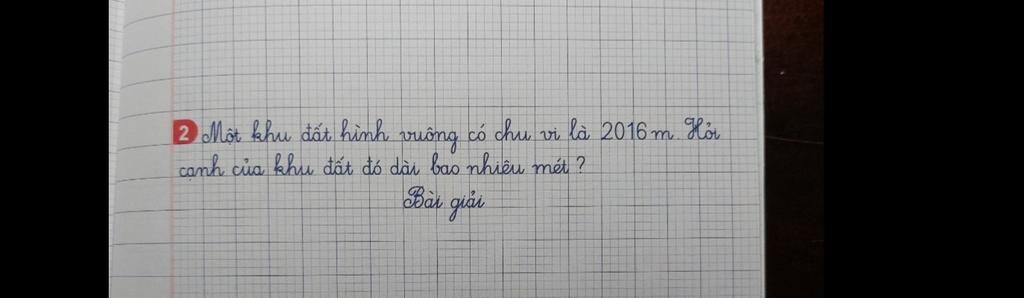 2 Một khu đất hình vuông có chu vi là 2016 m. Hỏi
cạnh của khu đất đó dài bao nhiêu mét ?
Bài giải